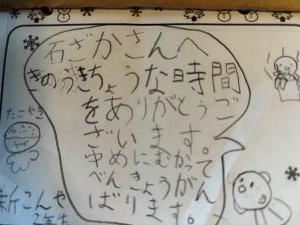 石ざかさんへ
きのうきちょうな時間
をありがとうご
ざいます。
ゆめにむかって
べんきょうがん
ばります。
たこやき
新こんや
2年生